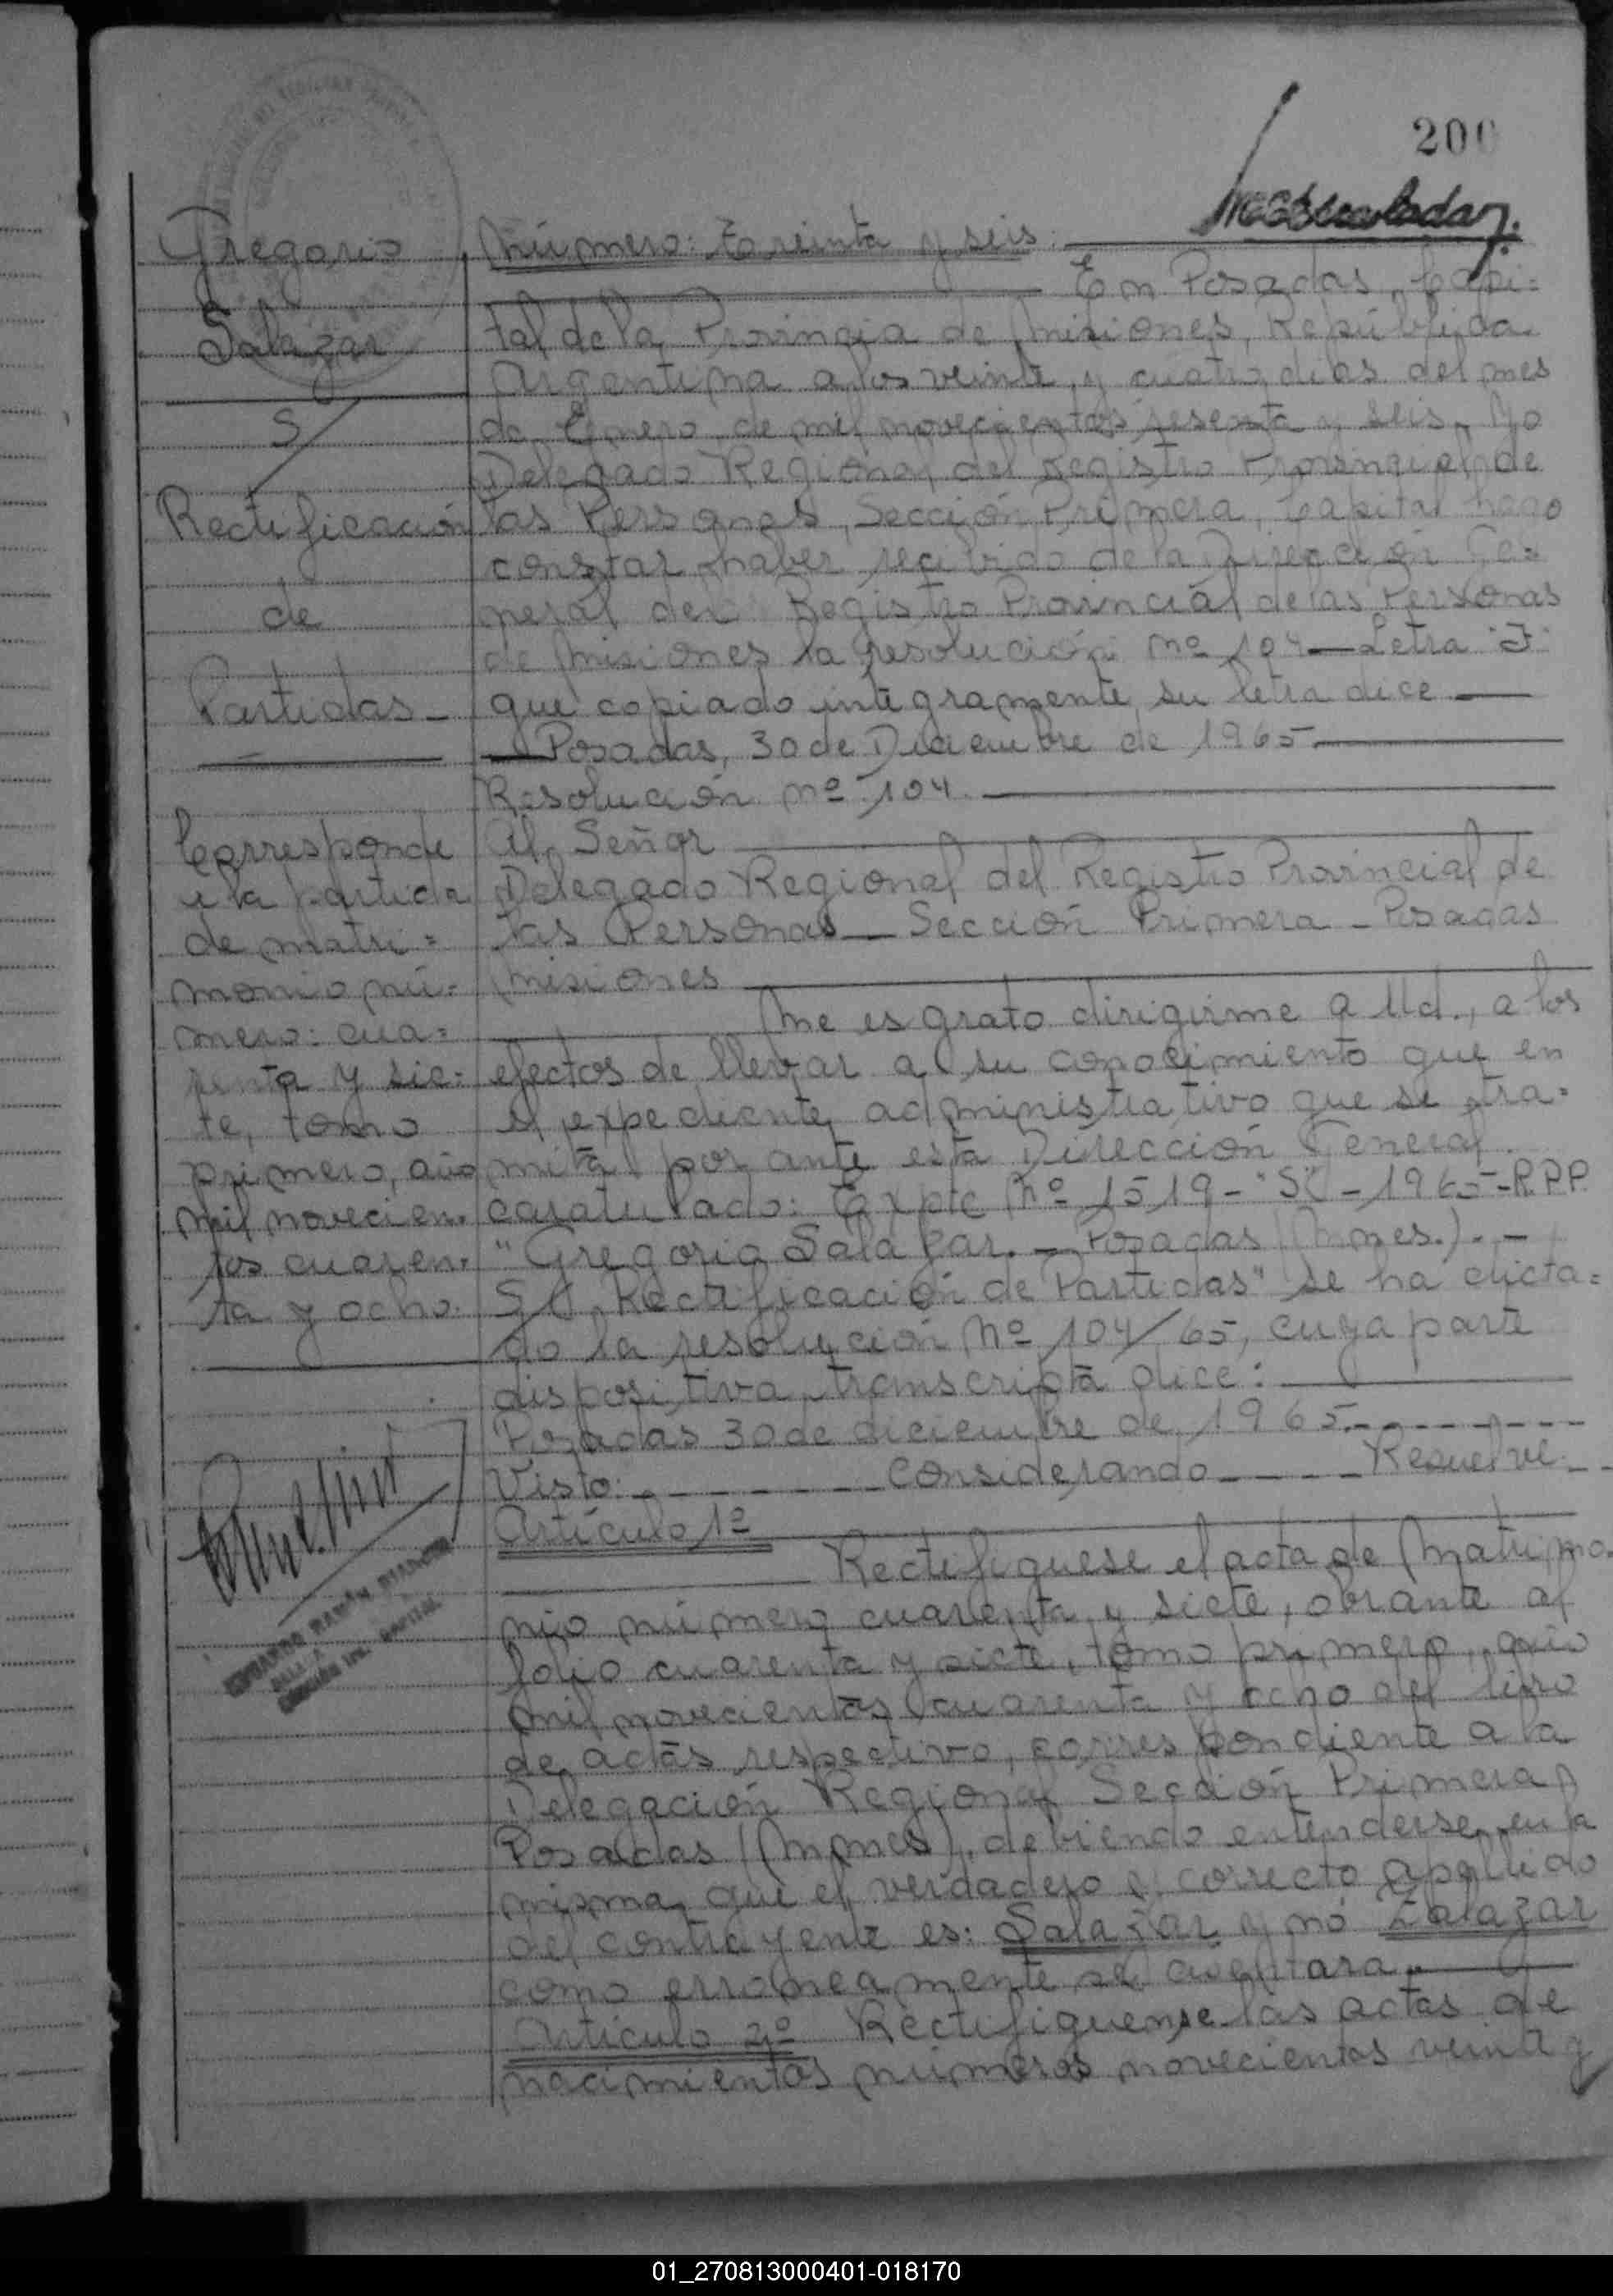 200
Gregorio
Salazar
S/
Rectificación
de
Partidas
Corresponde
a la partida
de matri=
monio nú=
mero: cua=
renta y sie=
te, tomo
primero, año
mil novecien=
tos cuaren=
ta y ocho.
EDUARDO RAMÓN
CAPITAL
Número: treinta y seis.
En Posadas, Capi=
tal de la Provincia de Misiones, República
Argentina a los veinte y cuatro días del mes
de Enero de mil novecientos sesenta y seis. Yo
Delegado Regional del Registro Provincial de
las Personas, Sección Primera, Capital hago
constar haber recibido de la Dirección Ge=
neral del Registro Provincial de las Personas
de Misiones la resolución Nº 104 — Letra "J"
que copiado integramente su letra dice —
— Posadas, 30 de Diciembre de 1965 —
Resolución Nº 104. —
Al Señor
Delegado Regional del Registro Provincial de
las Personas — Sección Primera - Posadas
Misiones
Me es grato dirigirme a Ud., a los
efectos de llevar a su conocimiento que en
el expediente administrativo que se tra=
mita por ante esta Dirección General
caratulado: Expte Nº 1519 - "S" - 1965 - R.P.P.
"Gregorio Salazar. — Posadas (Mnes.). -
S/ Rectificación de Partidas" se ha dicta=
do la resolución Nº 104/65, cuya parte
dispositiva transcripta dice:
Posadas 30 de diciembre de 1965.-------
Visto: -------- Considerando ----- Resuelve --
Artículo 1º
Rectifiquese el acta de Matrimo=
nio número cuarenta y siete, obrante al
folio cuarenta y siete, tomo primero, año
mil novecientos cuarenta y ocho del libro
de actas respectivo, correspondiente a la
Delegación Regional Sección Primera
Posadas (Mnes), debiendo entenderse en la
misma que el verdadero y correcto apellido
del contrayente es: Salazar y nó Zalazar
como erroneamente se asentara. —
Artículo 2º Rectifiquense las actas de
nacimientos números novecientos veinte y
01_270813000401-018170